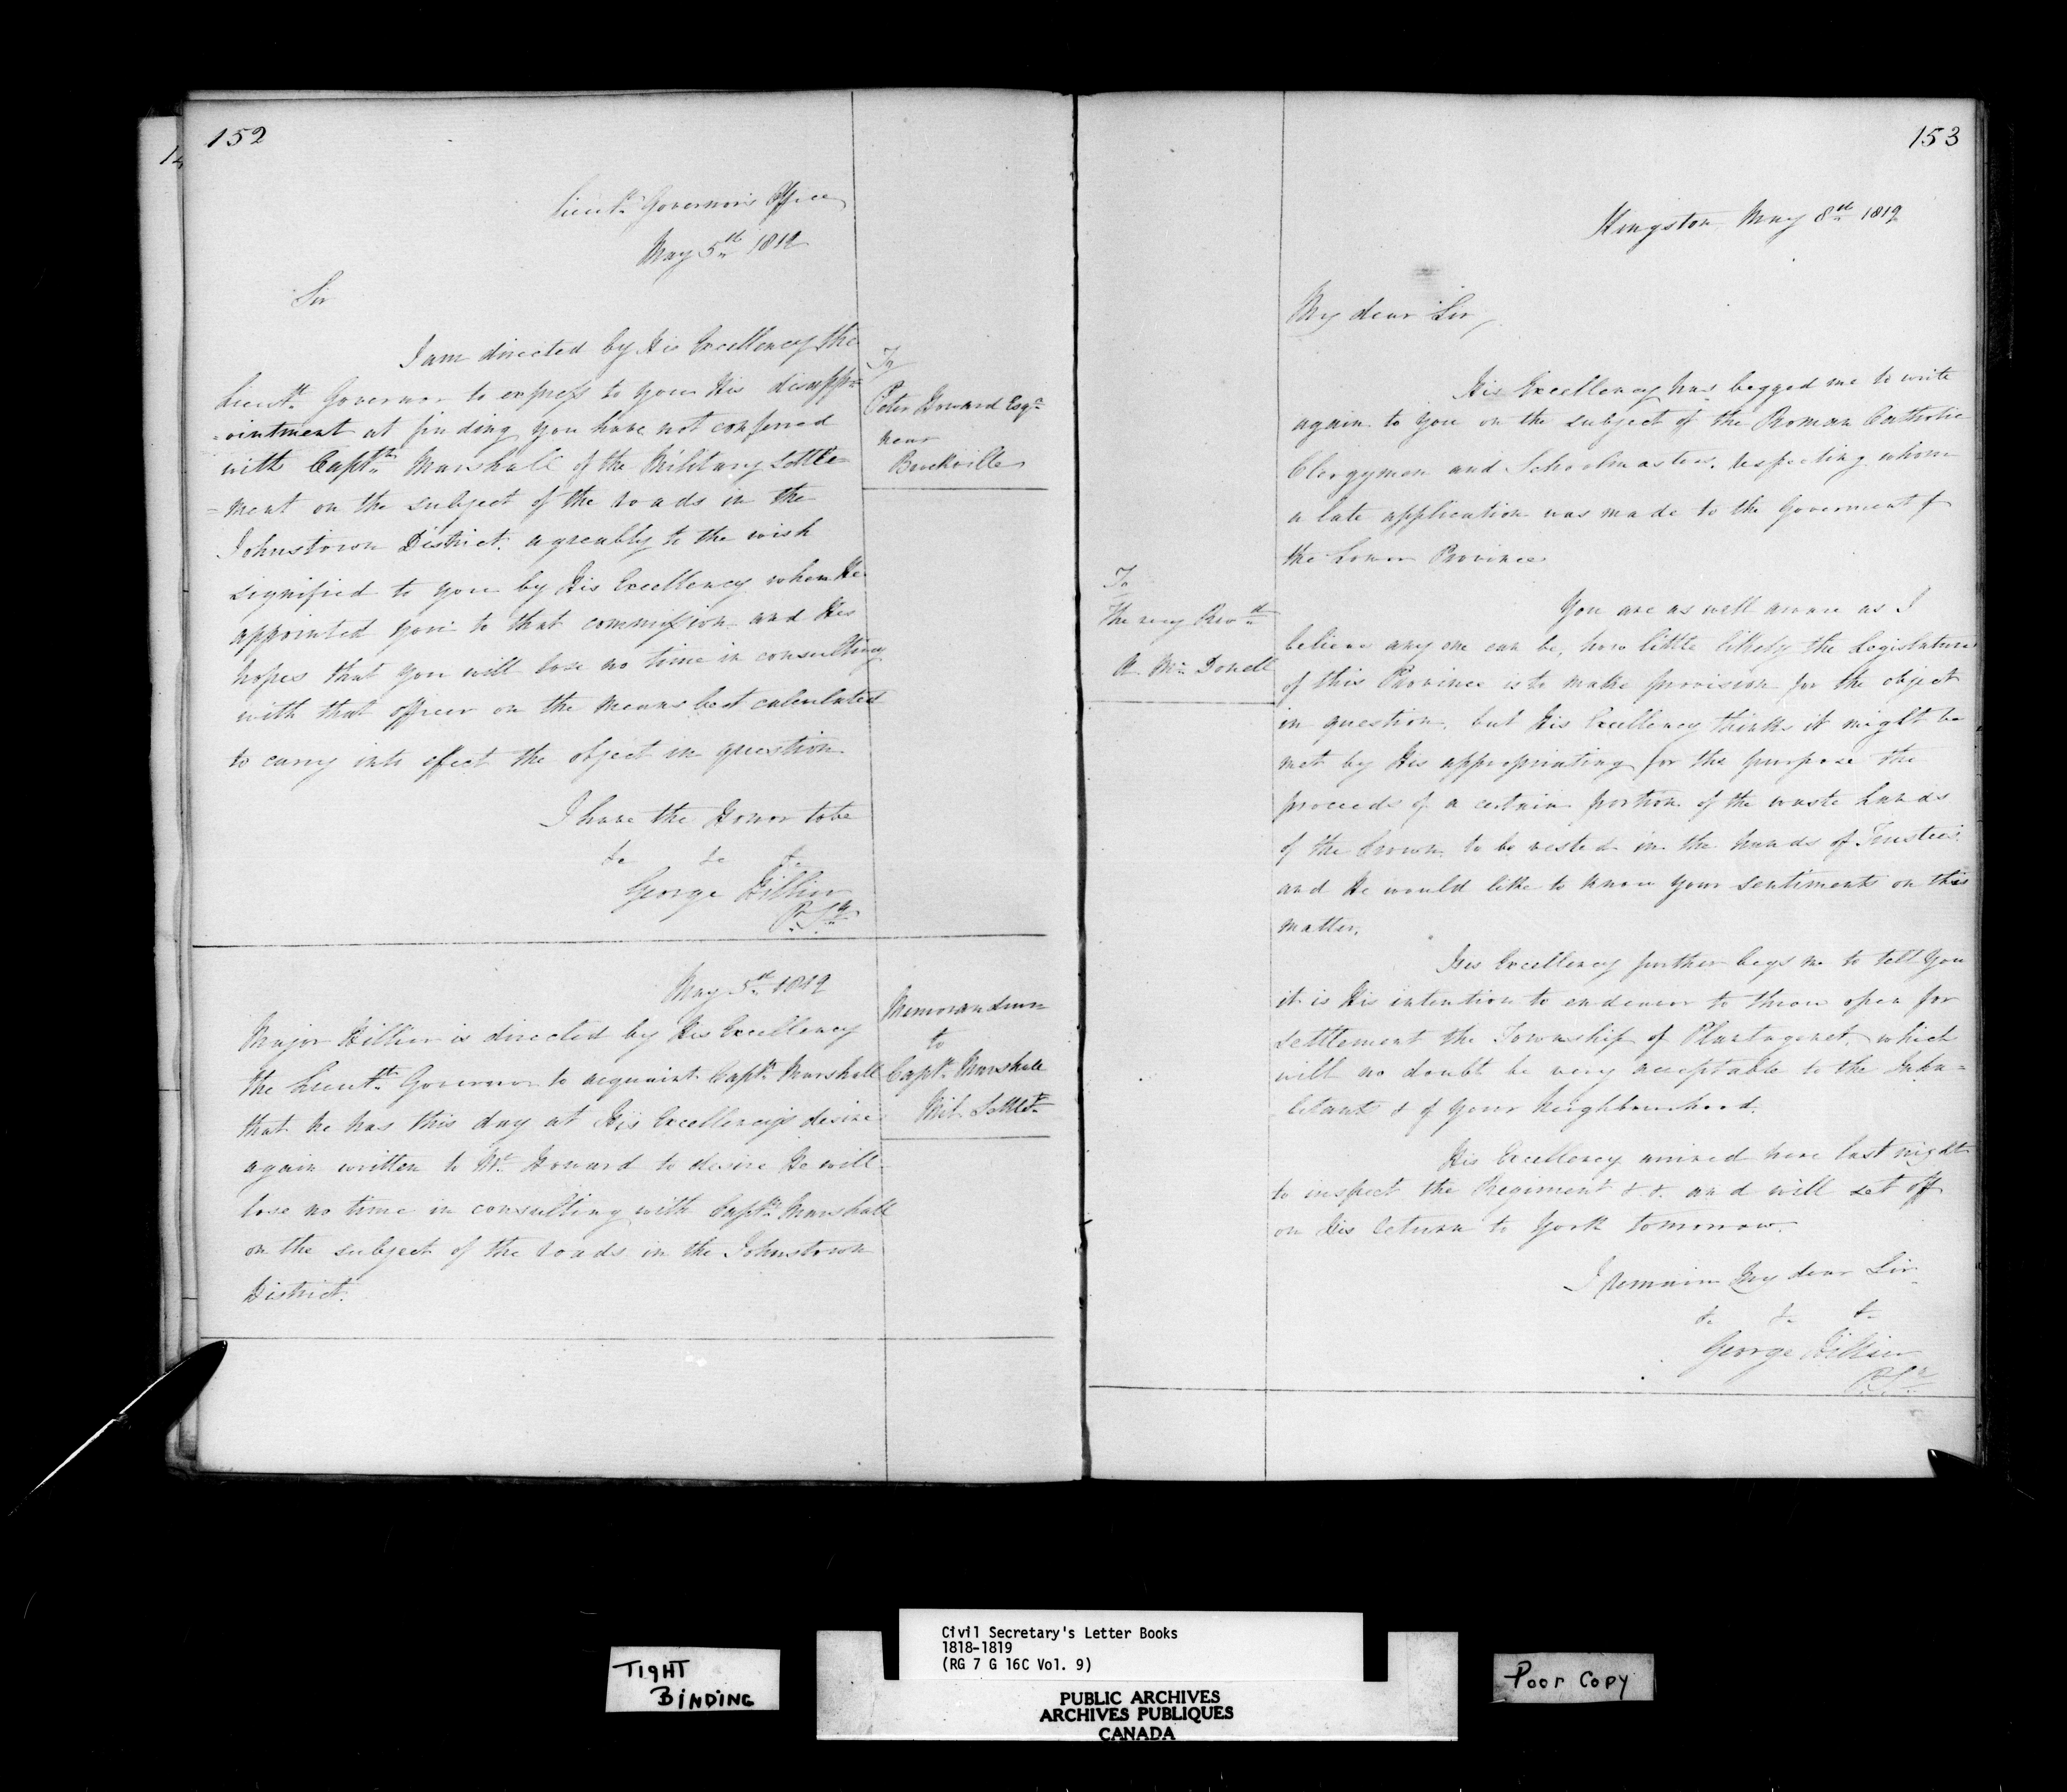 152
Lieut.t Governor's Office
May 5th 1819
Sir
I am directed by His Excellency the
Lieut.t Governor to express to you His disapp=
=ointment at finding you have not conferred
with Captn Marshall of the Military Settle=
=ment on the subject of the roads in the
Johnstown District, agreably to the wish
signified to you by His Excellency when He
appointed you to that commission and His
hopes that you will lose no time in consulting
with that officer on the means best calculated
to carry into effect the object in question
I have the Honor to be
&c &c &c
George Hillier
P. Sy
To
Peter Howard Esqr
near
Brockville
May 5th 1819
Major Hillier is directed by His Excellency
the Lieutt Governor to acquaint Captn Marshall
that he has this day at His Excellency's desire
again written to Mr Howard to desire He will
lose no time in consulting with Captn Marshall
on the subject of the roads in the Johnstown
District.
Memorandum
to
Captn Marshall
Mil. Settlet
153
Kingston May 8th 1819
My dear Sir,
His Excellency has begged me to write
again to you on the subject of the Roman Catholic
Clergymen and Schoolmasters, respecting whom
a late application was made to the Goverment of
the Lower Province
You are as well aware as I
believe any one can be, how little likely the Legislature
of this Province is to make provision for the object
in question, but His Excellency thinks it might be
met by His appropriating for the purpose the
proceeds of a certain portion of the waste Lands
of the Crown, to be vested in the hands of Trustees
and He would like to know your sentiments on this
matter.
His Excellency further begs me to tell You
it is His intention to endevor to throw open for
settlement the Township of Plantagenet, which
will no doubt be very acceptable to the Inha=
bitants & of your Neighbourhood.
His Excellency arrived here last night
to inspect the Regiment &. &. and will set off
on His return to York tomorrow.
I remain My dear Sir
&c &c &c
George Hillier
P. Sy
To
The very Revd
A Mc Donell
Civil Secretary's Letter Books
1818-1819
(RG 7 G 16C Vol. 9)
TIGHT
BINDING
PUBLIC ARCHIVES
ARCHIVES PUBLIQUES
CANADA
Poor Copy